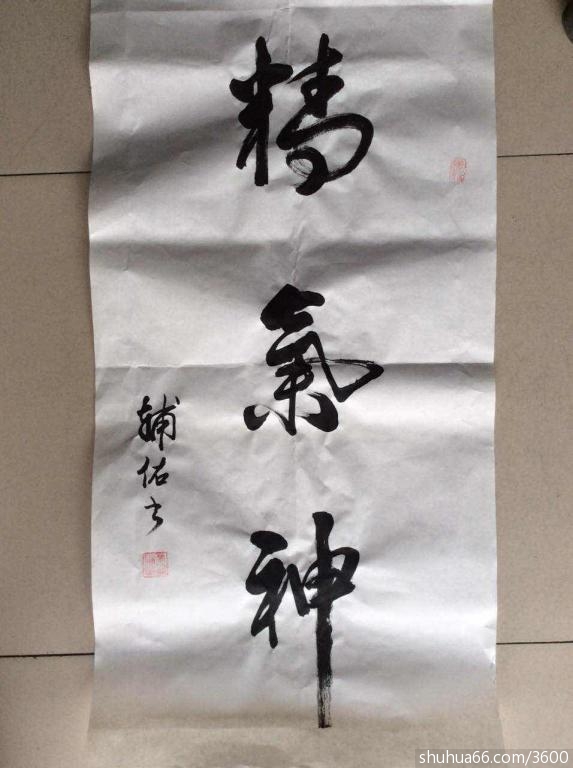 精
氣
神
輔佑书
shuhua66.com/3600